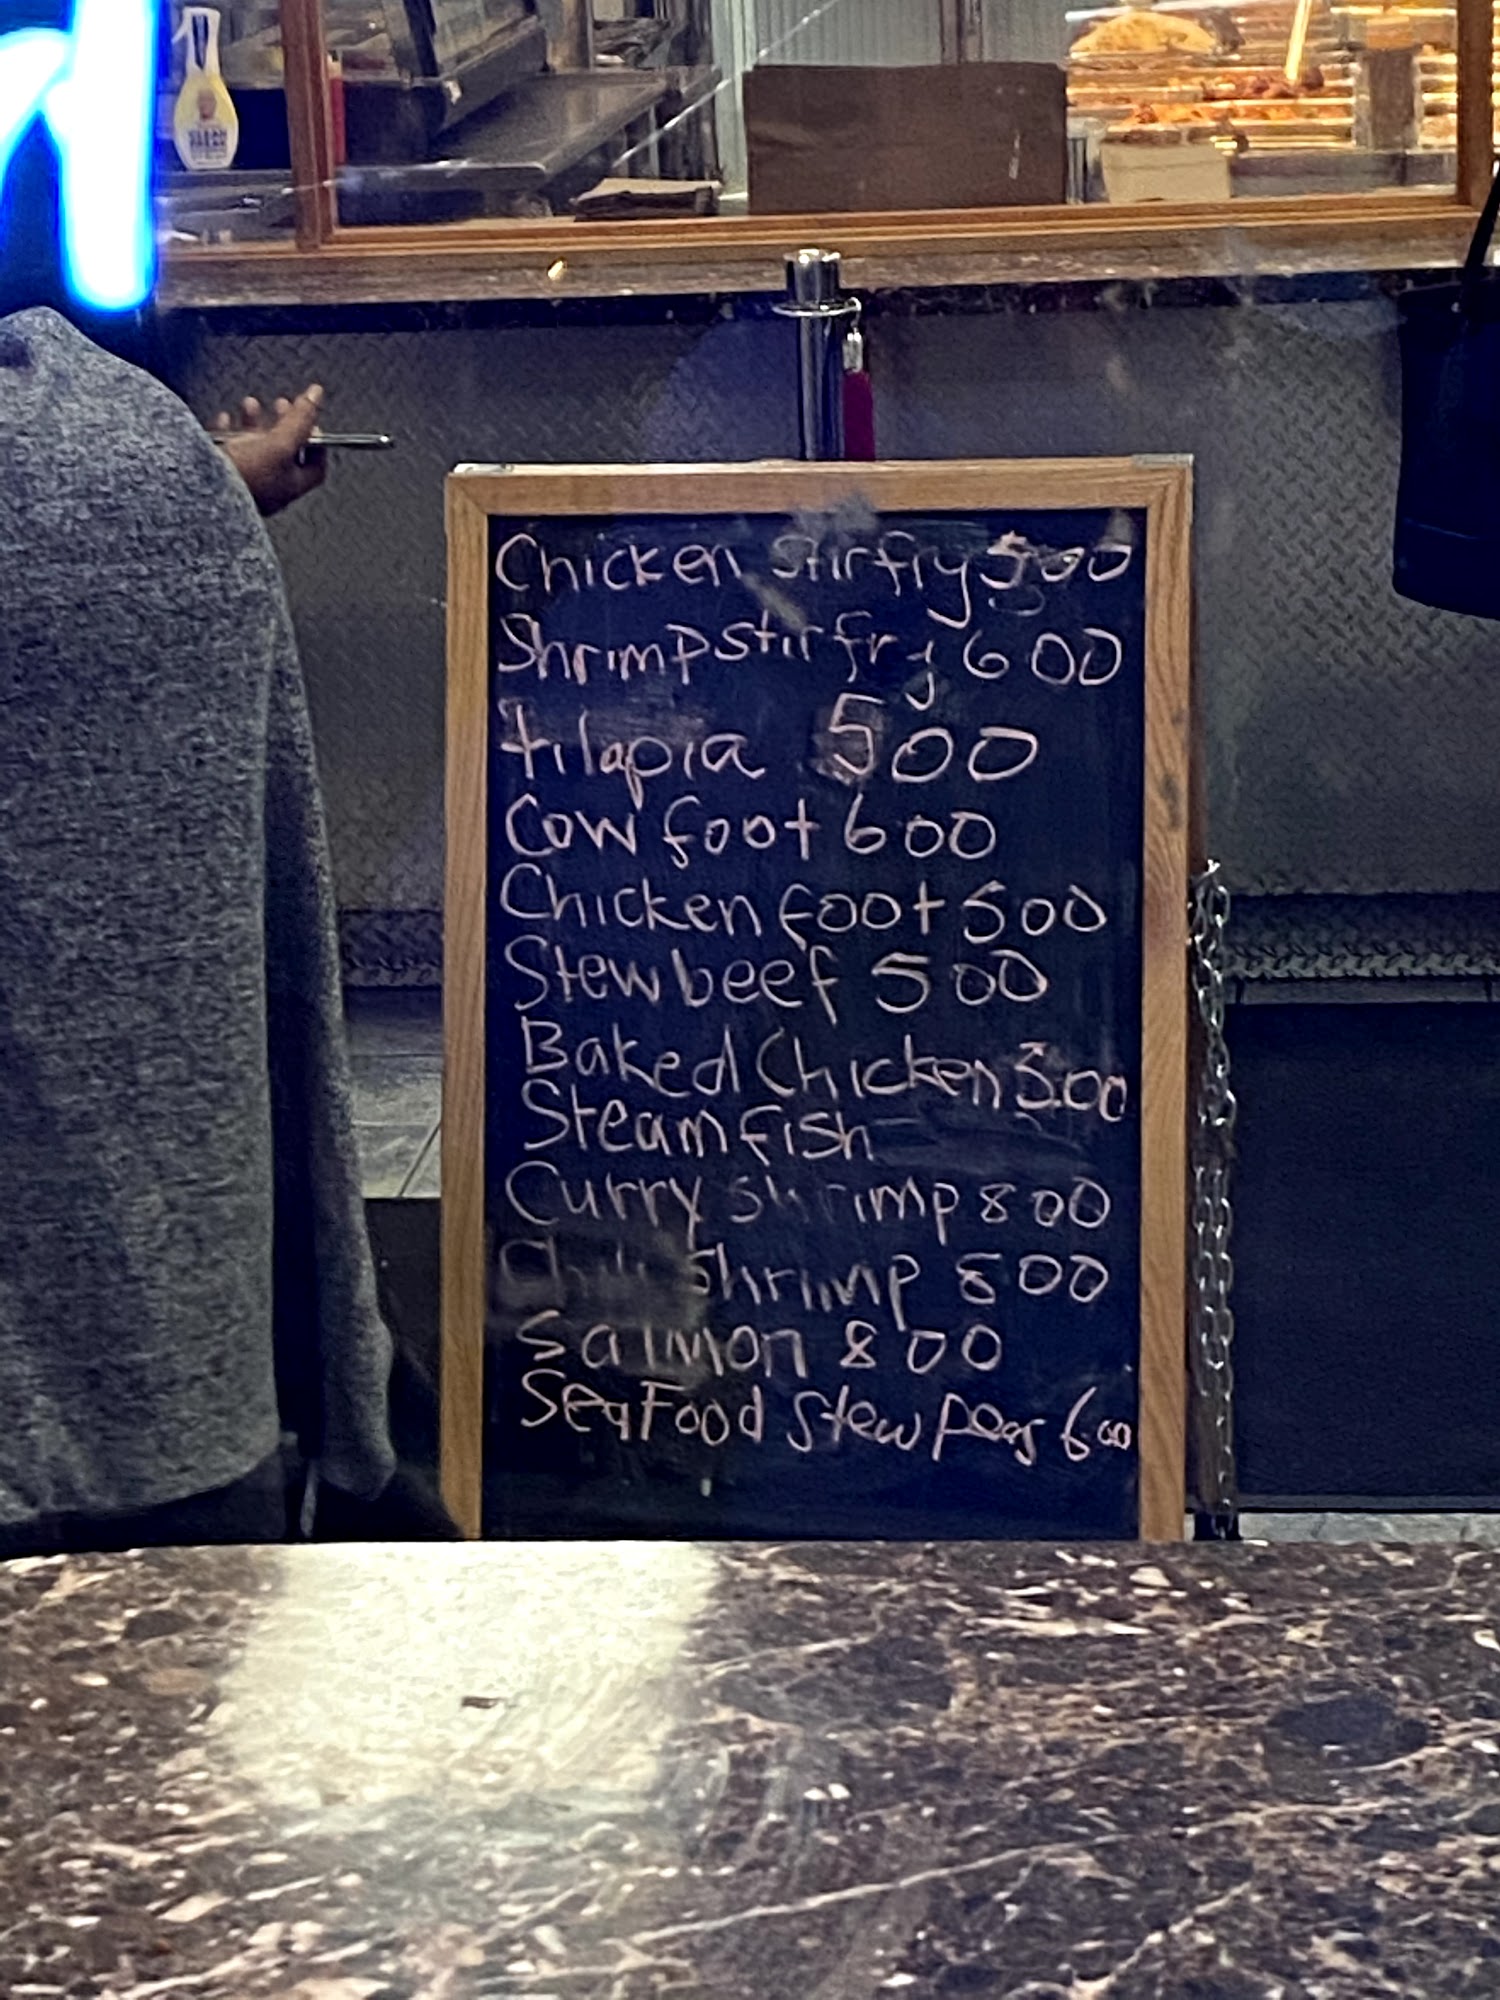 Chicken Stirfry 500
Shrimp stir fry 600
tilapia 500
Cow foot 600
Chicken foot 500
Stew beef 500
Baked Chicken 500
Steam fish
Curry shrimp 800
Shrimp 800
Salmon 800
SeaFood Stew peas 600